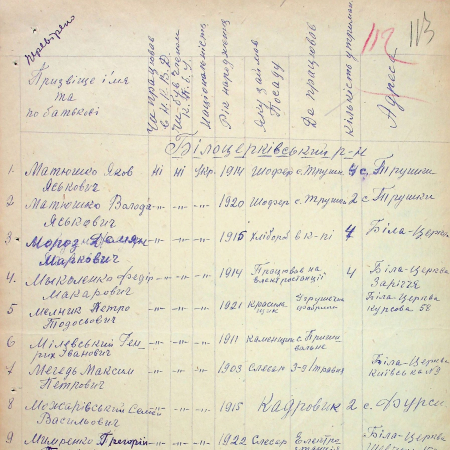 Перевірено
112 113
Прізвище ім'я
та
по батькові
Чи працював
в Н.К.В.Д.
Чи був членом
Національність
Рік народжен.
Яку займав
Посаду
Де працював
Кількість утриман.
Адреса
Білоцерківський р-н
1. Матюшко Яков Яськович ні ні Укр. 1914 Шофер с. Трушки 4 с. Трушки
2 Матюшко Волода Яськович -"- -"- -"- 1920 Шофер с. Трушки 2 с. Трушки
3. Мороз Демян Маркович -"- -"- -"- 1915 хлібороб в к-пі 4 Біла-Церква
4. Мыколенко Федір Макарович -"- -"- -"- 1914 Працював на Електростанції 4 Біла-Церква Заріччя
5 Мельник Петро Тодосьович -"- -"- -"- 1921 Біла-Церква
6 Мілевський Ген рих Іванович -"- -"- -"- 1911 каменщик с.
7 Мегедь Максим Петрович -"- -"- -"- 1903 Слесар Біла-Церква Київська
8 Можарівський Василькович -"- -"- -"- 1915 Кадровик 2 с. Фурси
9 Мимренко Григорій -"- -"- -"- 1922 Слесар Електро Біла-Церква